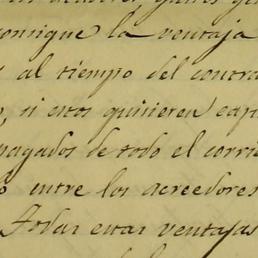 consigue la ventaja
al tiempo del contra
si estos quisieren cap
pagados de todo el corrie
entre los acreedores
Todas estas ventajas